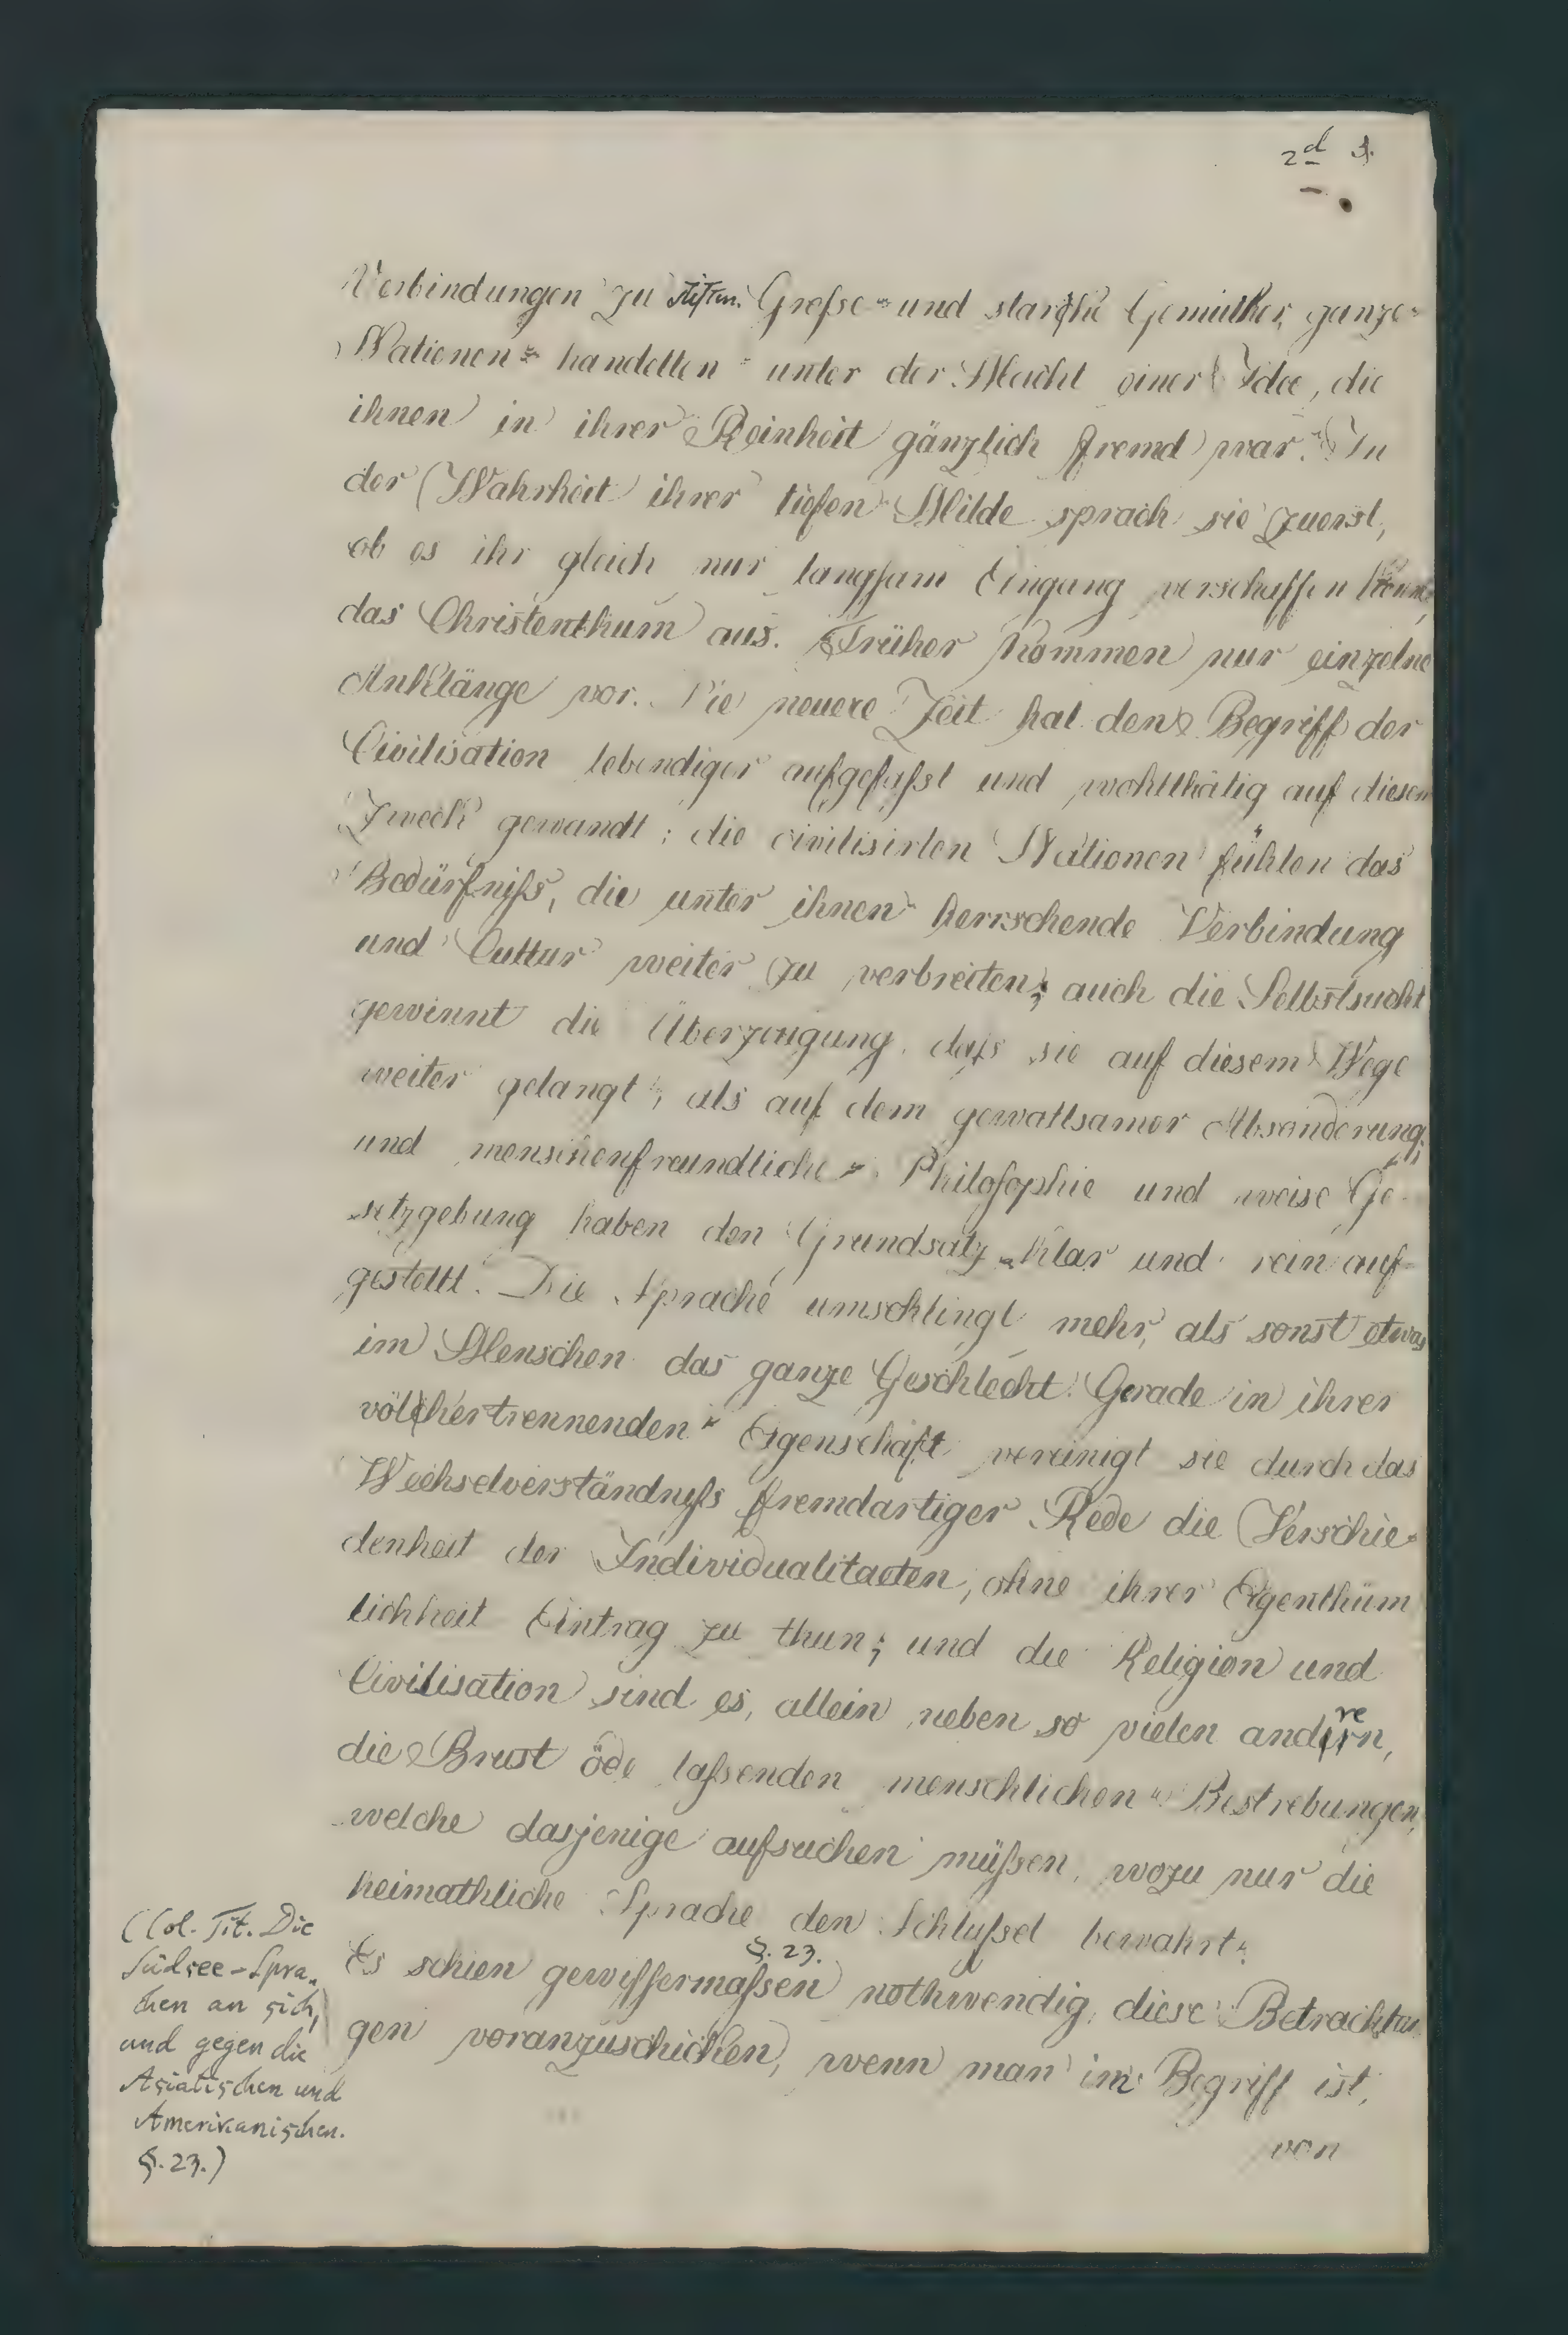 2d
Verbindungen zu stiften. Große und starke Gemüther, ganze
Nationen handelten unter der Macht einer Idee, die
ihnen in ihrer Reinheit gänzlich fremd war. In
der Wahrheit ihrer tiefen Milde sprach sie zuerst,
ob es ihr gleich nur langsam Eingang verschaffen konnte,
das Christenthum aus. Früher kommen nur einzelne
Anklänge vor. Die neuere Zeit hat den Begriff der
Civilisation lebendiger aufgefaßt und wohlthätig auf diesen
Zweck gewandt; die civilisirten Nationen fühlen das
Bedürfniß, die unter ihnen herrschende Verbindung
und Cultur weiter zu verbreiten; auch die Selbstsucht
gewinnt die Überzeugung, daß sie auf diesem Wege
weiter gelangt, als auf dem gewaltsamer Absonderung;
und menschenfreundliche Philosophie und weise Ge-
setzgebung haben den Grundsatz klar und rein auf-
gestellt. Die Sprache umschlingt mehr, als sonst etwas
im Menschen das ganze Geschlecht. Gerade in ihrer
völkertrennenden Eigenschaft vereinigt sie durch das
Wechselverständniß fremdartiger Rede die Verschie-
denheit der Individualitaeten, ohne ihrer Eigenthüm
lichkeit Eintrag zu thun; und die Religion und
Civilisation sind es, allein neben so vielen andren,
die Brust öde laßenden menschlichen Bestrebungen,
welche dasjenige aufsuchen müßen, wozu nur die
heimathliche Sprache den Schlußel bewahrt.
§. 23.
Es schien gewissermaßen nothwendig, diese Betrachtun
gen voranzuschicken, wenn man im Begriff ist,
von
(Col. Tit. Die
Südsee-Spra-
chen an sich,
und gegen die
Asiatischen und
Amerikanischen.
§. 23.)